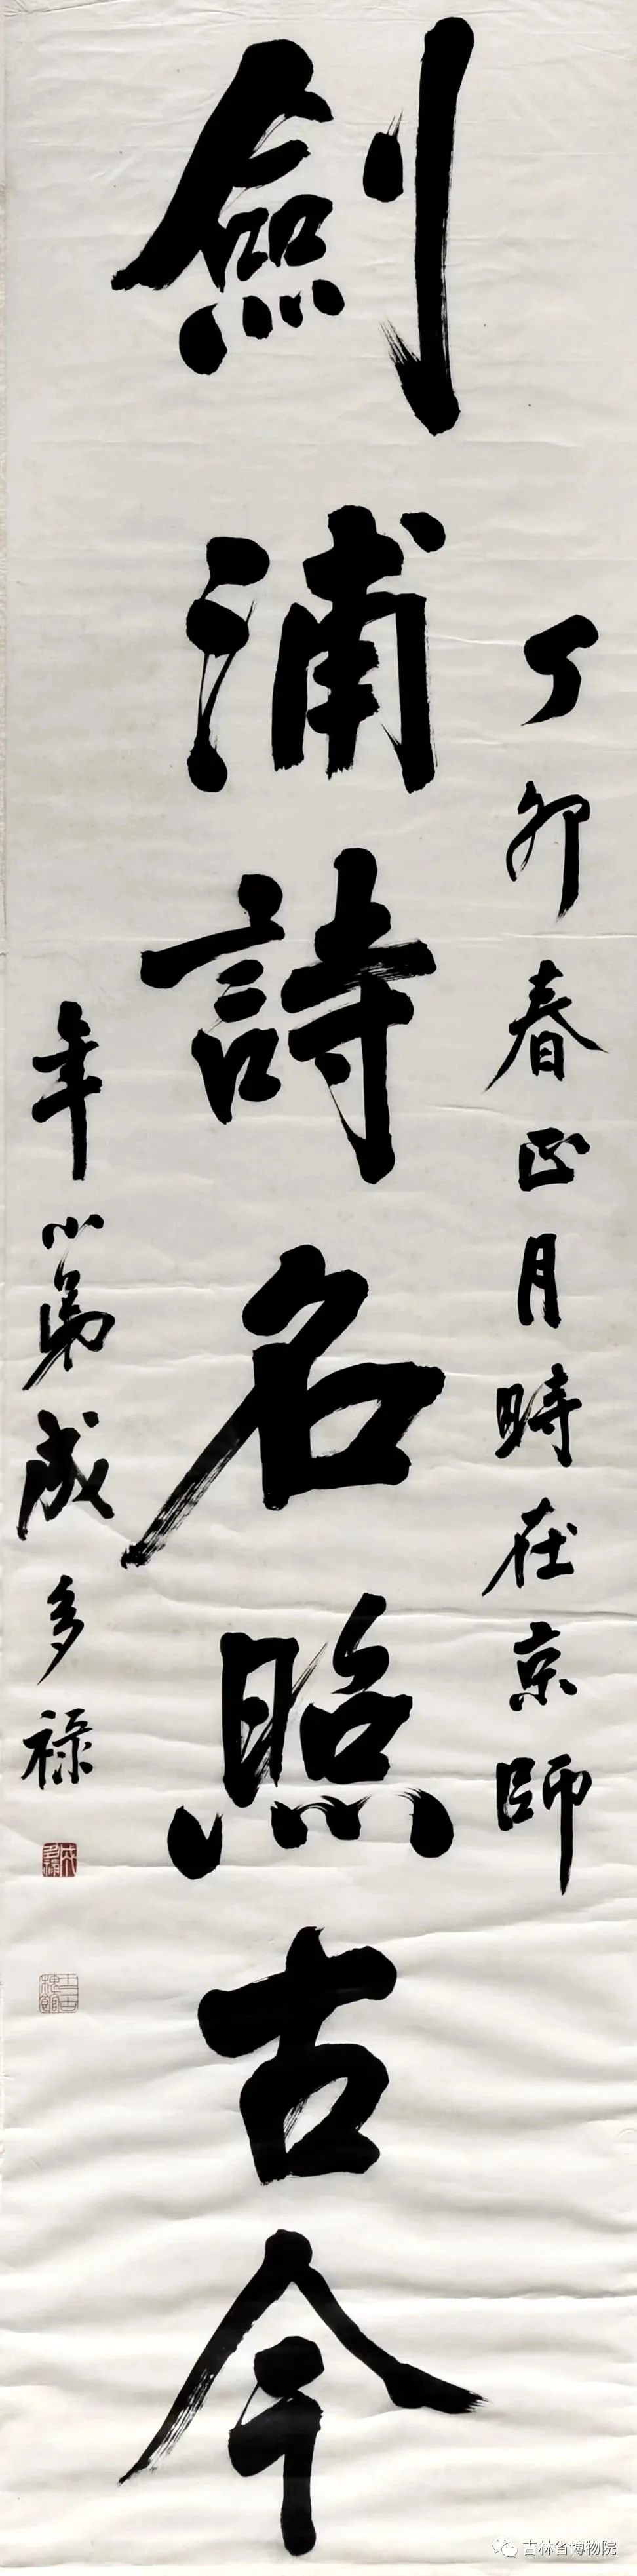 劍浦詩名照古今
丁卯春正月時在京師
年小弟成多祿
成多祿
吉林省博物院